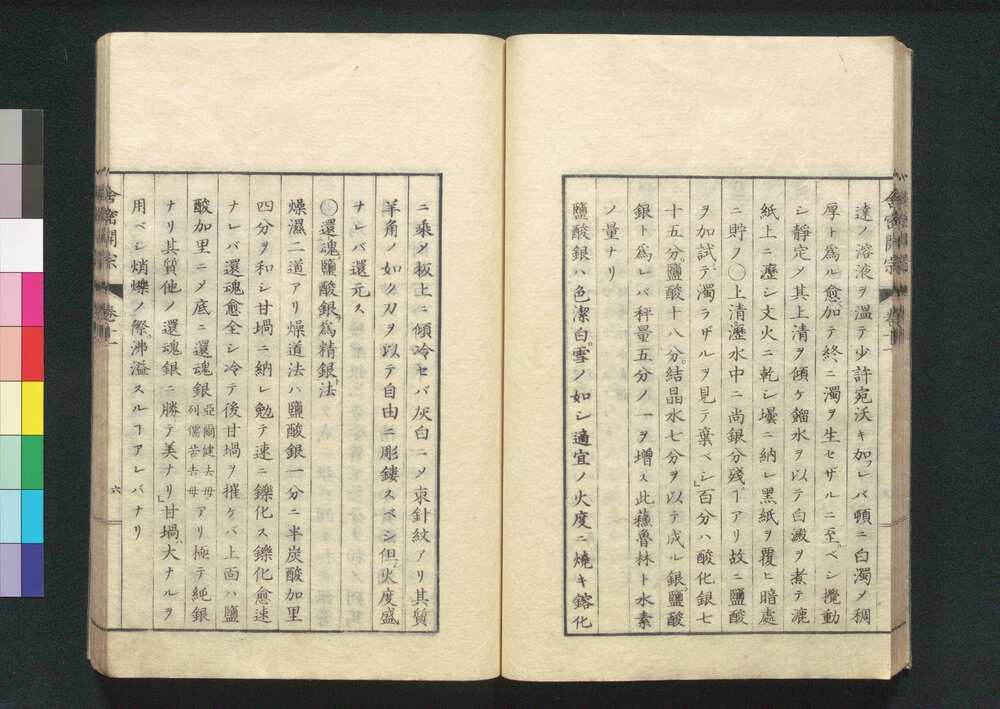 達ノ溶液ヲ溫テ少許宛沃キ加レバ頓ニ白濁メ稠
厚ト爲ル愈加テ終ニ濁ヲ生セザルニ至ベシ攪動
シ靜定メ其上清ヲ傾ケ餾水ヲ以テ白澱ヲ煮テ漉
紙上ニ瀝シ文火ニ乾シ壜ニ納レ黑紙ヲ覆ヒ暗處
ニ貯フ〇上清瀝水中ニ尚銀分殘ヿアリ故ニ鹽酸
ヲ加試テ濁ラザルヲ見テ棄ベシ」百分ハ酸化銀七
十五分。鹽酸十八分。結晶水七分ヲ以テ成ル銀鹽酸
銀ト爲レバ秤量五分ノ一ヲ增ス此蘓魯林ト水素
ノ量ナリ
鹽酸銀ハ色潔白。雪ノ如シ適宜ノ火度ニ燒キ鎔化
ニ乘メ板上ニ傾冷セバ灰白ニメ束針紋アリ其質
羊角ノ如ク刀ヲ以テ自由ニ彫鏤スベシ但火度盛
ナレバ還元ス
〇還魂鹽酸銀爲精銀法
燥濕二道アリ燥道法ハ鹽酸銀一分ニ半炭酸加里
四分ヲ和シ甘堝ニ納レ勉テ速ニ鑠化ス鑠化愈速
ナレバ還魂愈全シ冷テ後甘堝ヲ摧ケバ上面ハ鹽
酸加里ニメ底ニ還魂銀亞爾健去母列儒吉去母アリ極テ純銀
ナリ其質他ノ還魂銀ニ勝テ美ナリ」甘堝大ナルヲ
用ベシ焇爍ノ際沸溢スルヿアレバナリ
舍密開宗 卷十一
六
舍密開宗